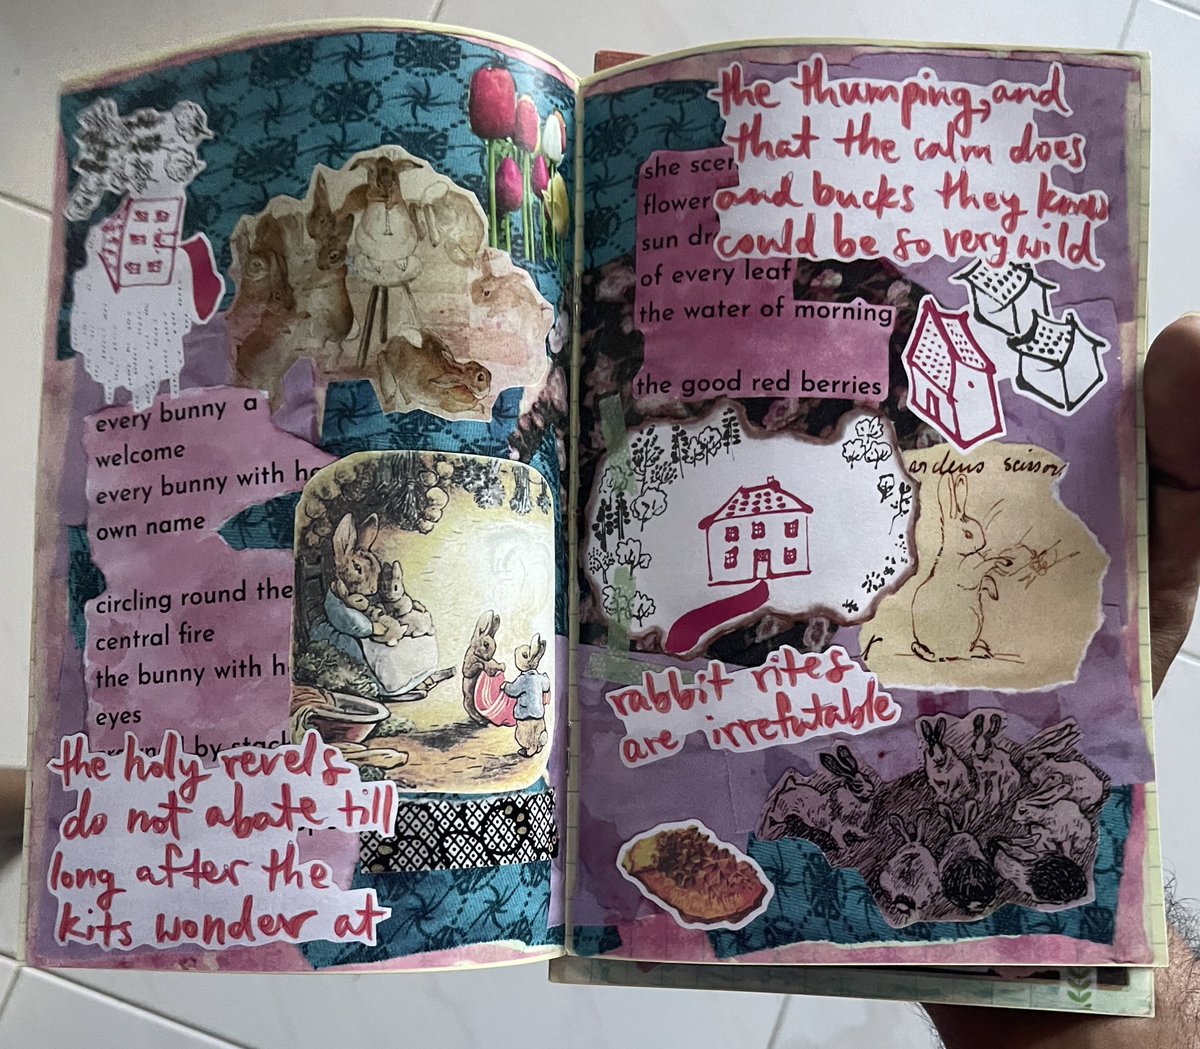 every bunny a
welcome
every bunny with
own name
circling round the
central fire
the bunny with
eyes
by
the holy revels
do not abate till
long after the
kits wonder at
the thumping, and
that the calm does
and bucks they know
could be so very wild
she
flower
sun
of every leaf
the water of morning
the good red berries
scissor
rabbit rites
are irrefutable